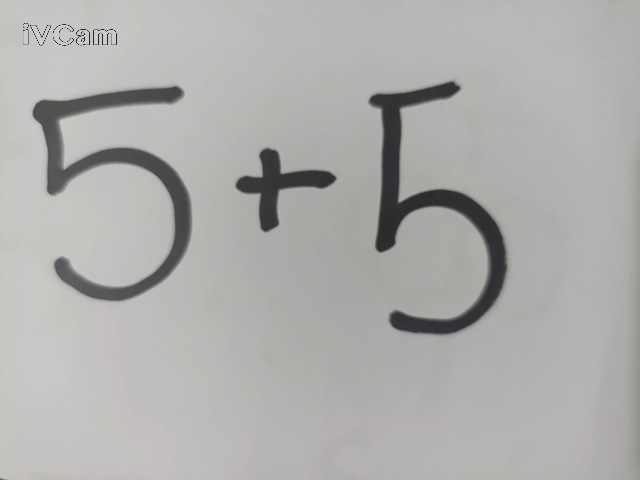 iVCam
5 + 5